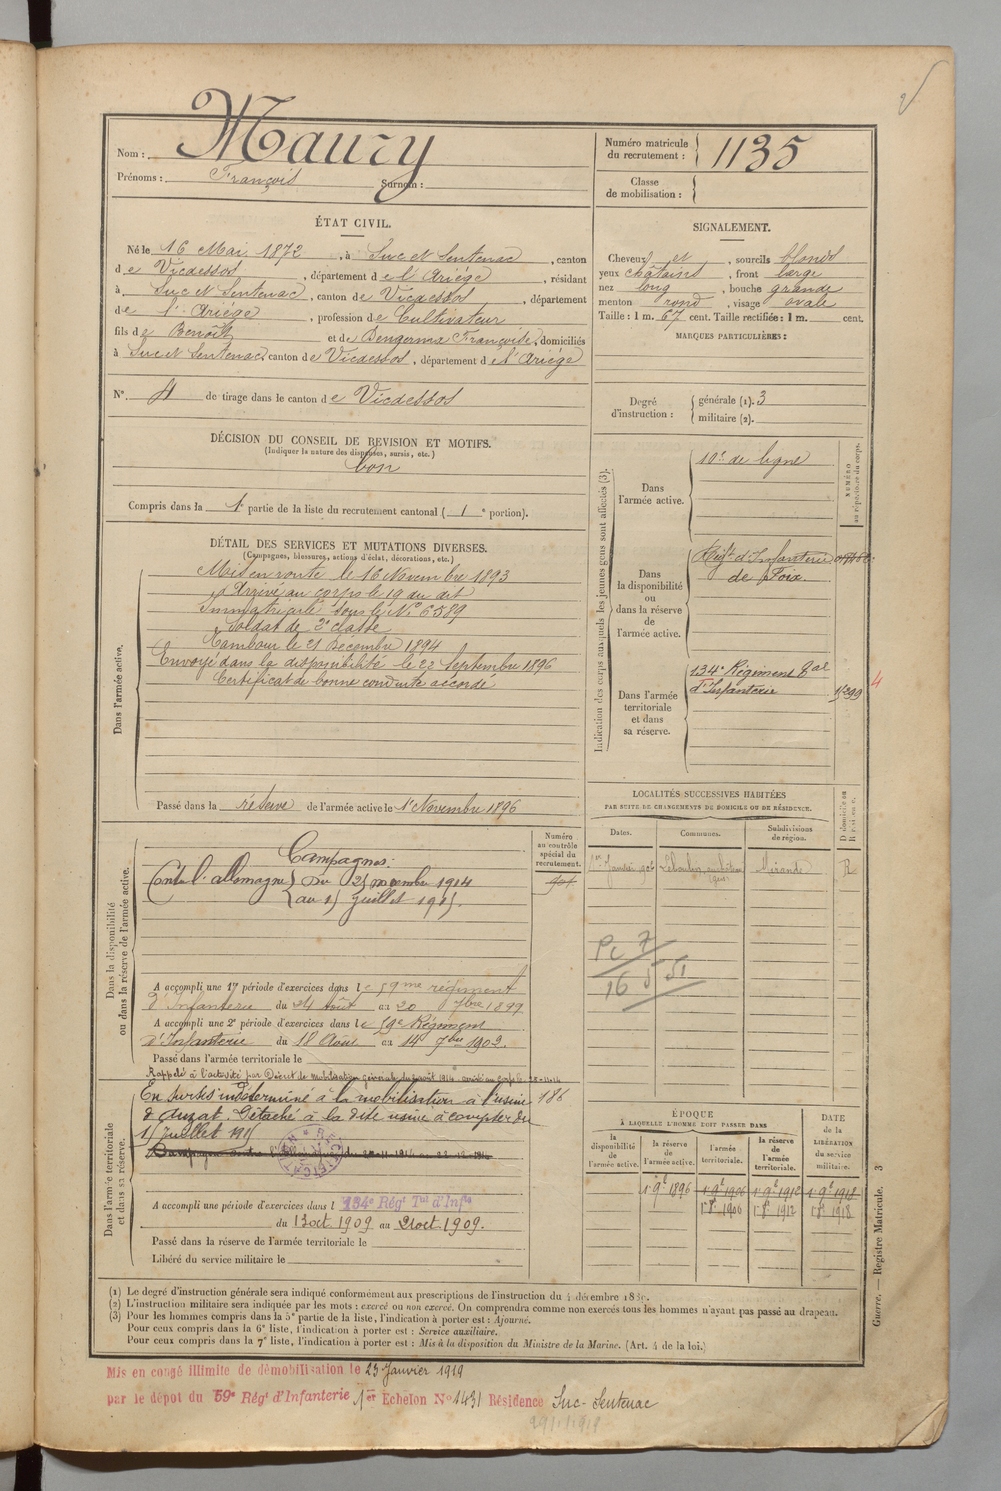 Nom : Maury
Prénoms : François Surnom :
Numéro matricule
du recrutement : 1135
Classe
de mobilisation :
ÉTAT CIVIL.
Né le 16 Mai 1872, à Suc et Sentenac, canton
de Vicdessos, département de l'Ariége, résidant
à Suc et Sentenac, canton de Vicdessos, département
de l'Ariége, profession de Cultivateur
fils de Benoît et de Dengerma Françoise, domiciliés
à Suc et Sentenac, canton de Vicdessos, département de l'Ariége
N° 4 de tirage dans le canton de Vicdessos
SIGNALEMENT.
Cheveux et, sourcils blonds
yeux châtains, front large
nez long, bouche grande
menton rond, visage ovale
Taille : 1 m. 67 cent. Taille rectifiée : 1 m. cent.
MARQUES PARTICULIÈRES :
Degré
d'instruction :
générale (1). 3
militaire (2).
DÉCISION DU CONSEIL DE REVISION ET MOTIFS.
(Indiquer la nature des dispenses, sursis, etc.)
bon
Compris dans la 1e partie de la liste du recrutement cantonal ( 1 e portion).
DÉTAIL DES SERVICES ET MUTATIONS DIVERSES.
(Campagnes, blessures, actions d'éclat, décorations, etc.)
Dans l'armée active.
Mis en route le 16 Novembre 1893
Arrivé au corps le 19 du dit
Immatriculé sous le N° 6589
Soldat de 2e classe
Tambour le 21 Decembre 1894
Envoyé dans la disponibilité le 22 Septembre 1896
Certificat de bonne conduite accordé
Passé dans la réserve de l'armée active le 1er Novembre 1896
Indication des corps auxquels les jeunes gens sont affectés (3).
NUMÉRO
au répertoire du corps.
Dans
l'armée active.
10e de ligne
Dans
la disponibilité
ou
dans la réserve
de
l'armée active.
Régt d'Infanterie
de Foix
Dans l'armée
territoriale
et dans
sa réserve.
134e Régiment Tal
d'Infanterie
4
LOCALITÉS SUCCESSIVES HABITÉES
PAR SUITE DE CHANGEMENTS DE DOMICILE OU DE RÉSIDENCE.
Dates.
Communes.
Subdivisions
de région.
D domicile ou
R résidence.
1er Janvier 906
Mirande
R
Pc 7
16 5 51
Dans la disponibilité
ou dans la réserve de l'armée active.
Numéro
au contrôle
spécial du
recrutement.
Campagnes :
Contre l'Allemagne du 25 novembre 1914
au 15 juillet 1915.
A accompli une 1re période d'exercices dans le 59me régiment
d'Infanterie du 24 Août au 20 7bre 1899
A accompli une 2e période d'exercices dans le 59e Régiment
d'Infanterie du 18 Août au 14 7bre 1902.
Passé dans l'armée territoriale le
Rappelé à l'activité par Décret de mobilisation générale du 1er août 1914. arrivé au corps le 25-11-14
Dans l'armée territoriale
et dans sa réserve.
En sursis indéterminé à la mobilisation à l'usine 186
d'Auzat. Détaché à la dite usine à compter du
15 Juillet 1915
RECTIFICATION
A accompli une période d'exercices dans l 134e Régt Tal d'Infie
du 13 oct 1909 au 21 oct 1909.
Passé dans la réserve de l'armée territoriale le
Libéré du service militaire le
ÉPOQUE
À LAQUELLE L'HOMME DOIT PASSER DANS
la
disponibilité
de
l'armée active.
la réserve
de
l'armée active.
l'armée
territoriale.
la réserve
de
l'armée
territoriale.
DATE
de la
LIBÉRATION
du service
militaire.
1er 9bre 1896
1er 9bre 1906
1er 9bre 1912
1er 9bre 1918
1er 8bre 1906
1er 8bre 1912
1er 8bre 1918
(1) Le degré d'instruction générale sera indiqué conformément aux prescriptions de l'instruction du 4 décembre 1889.
(2) L'instruction militaire sera indiquée par les mots : exercé ou non exercé. On comprendra comme non exercés tous les hommes n'ayant pas passé au drapeau.
(3) Pour les hommes compris dans la 5e partie de la liste, l'indication à porter est : Ajourné.
Pour ceux compris dans la 6e liste, l'indication à porter est : Service auxiliaire.
Pour ceux compris dans la 7e liste, l'indication à porter est : Mis à la disposition du Ministre de la Marine. (Art. 4 de la loi.)
Guerre. — Registre Matricule. 3
Mis en congé illimité de démobilisation le 23 Janvier 1919
par le dépot du 59e Régt d'Infanterie 1er Echelon No 1431 Résidence Suc-Sentenac